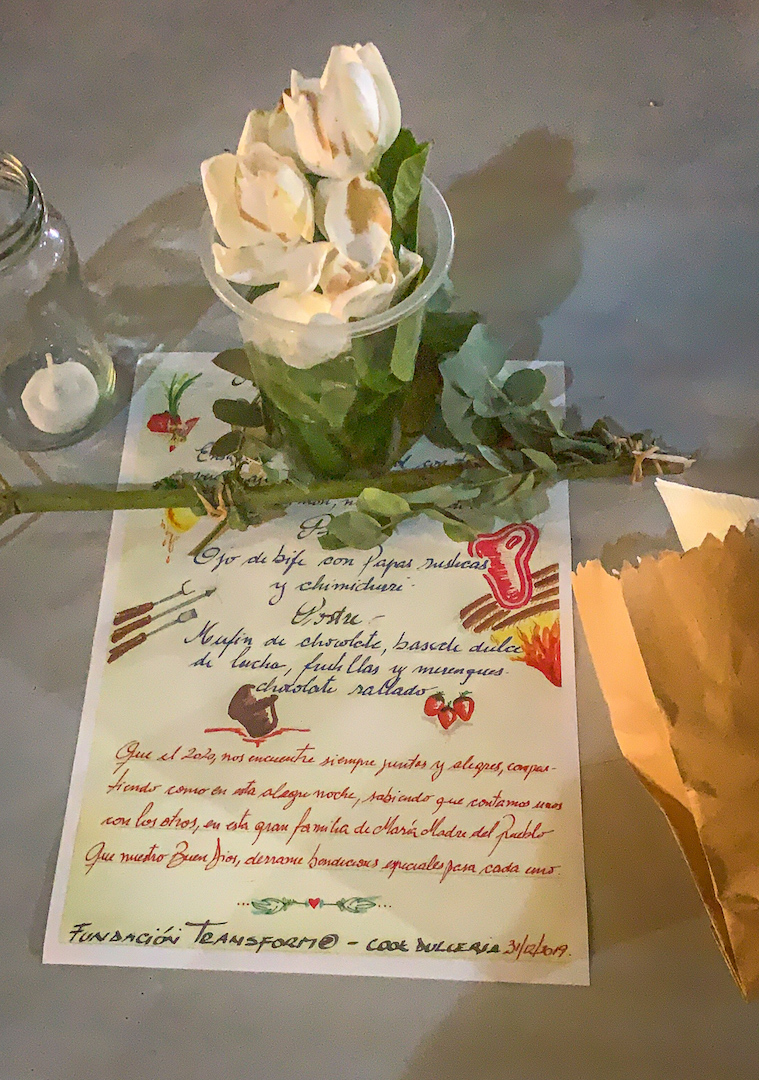 Ojo de bife con Papas rusticas
y chimichuri.
Postre.
Mufin de chocolate, base de dulce
de leche, frutillas y merengues.
chocolate rallado
Que el 2020, nos encuentre siempre juntos y alegres, compar-
tiendo como en esta alegre noche, sabiendo que contamos unos
con los otros, en esta gran familia de María Madre del Pueblo
Que nuestro Buen Dios, derrame bendiciones especiales para cada uno.
FUNDACIÓN TRANSFORM@ - COOL DULCERIA 31/12/2019.